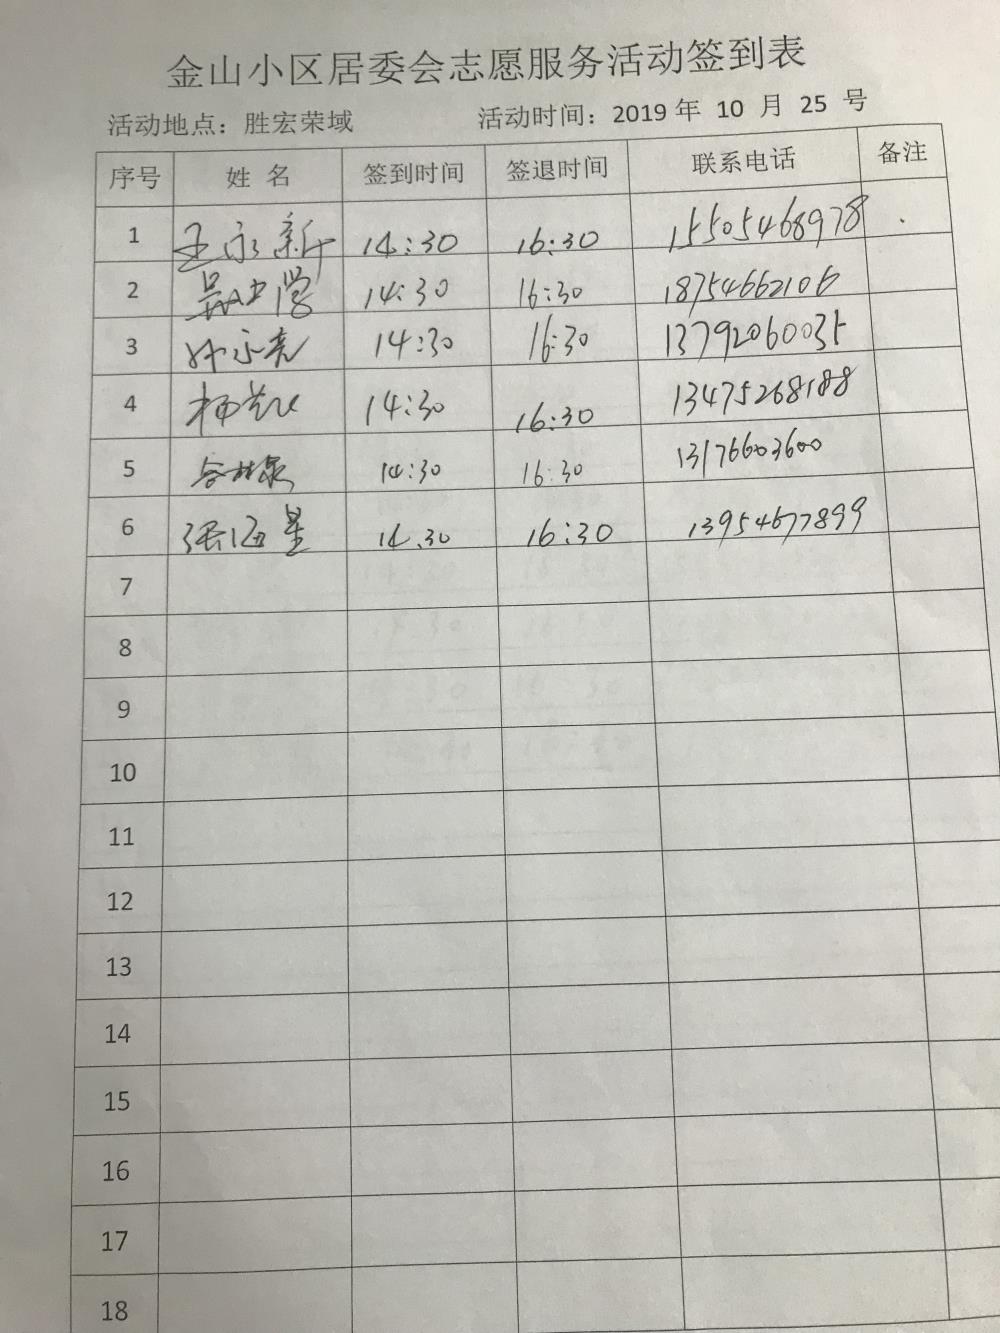 金山小区居委会志愿服务活动签到表
活动地点：胜宏荣域 活动时间：2019 年 10 月 25 号
序号 姓 名 签到时间 签退时间 联系电话 备注
1 王永新 14:30 16:30 15505468978
2 14:30 16:30 18754662106
3 孙永亮 14:30 16:30 13792060035
4 14:30 16:30 13475268188
5 14:30 16:30 13176603600
6 张海星 14.30 16:30 13954677899
7
8
9
10
11
12
13
14
15
16
17
18